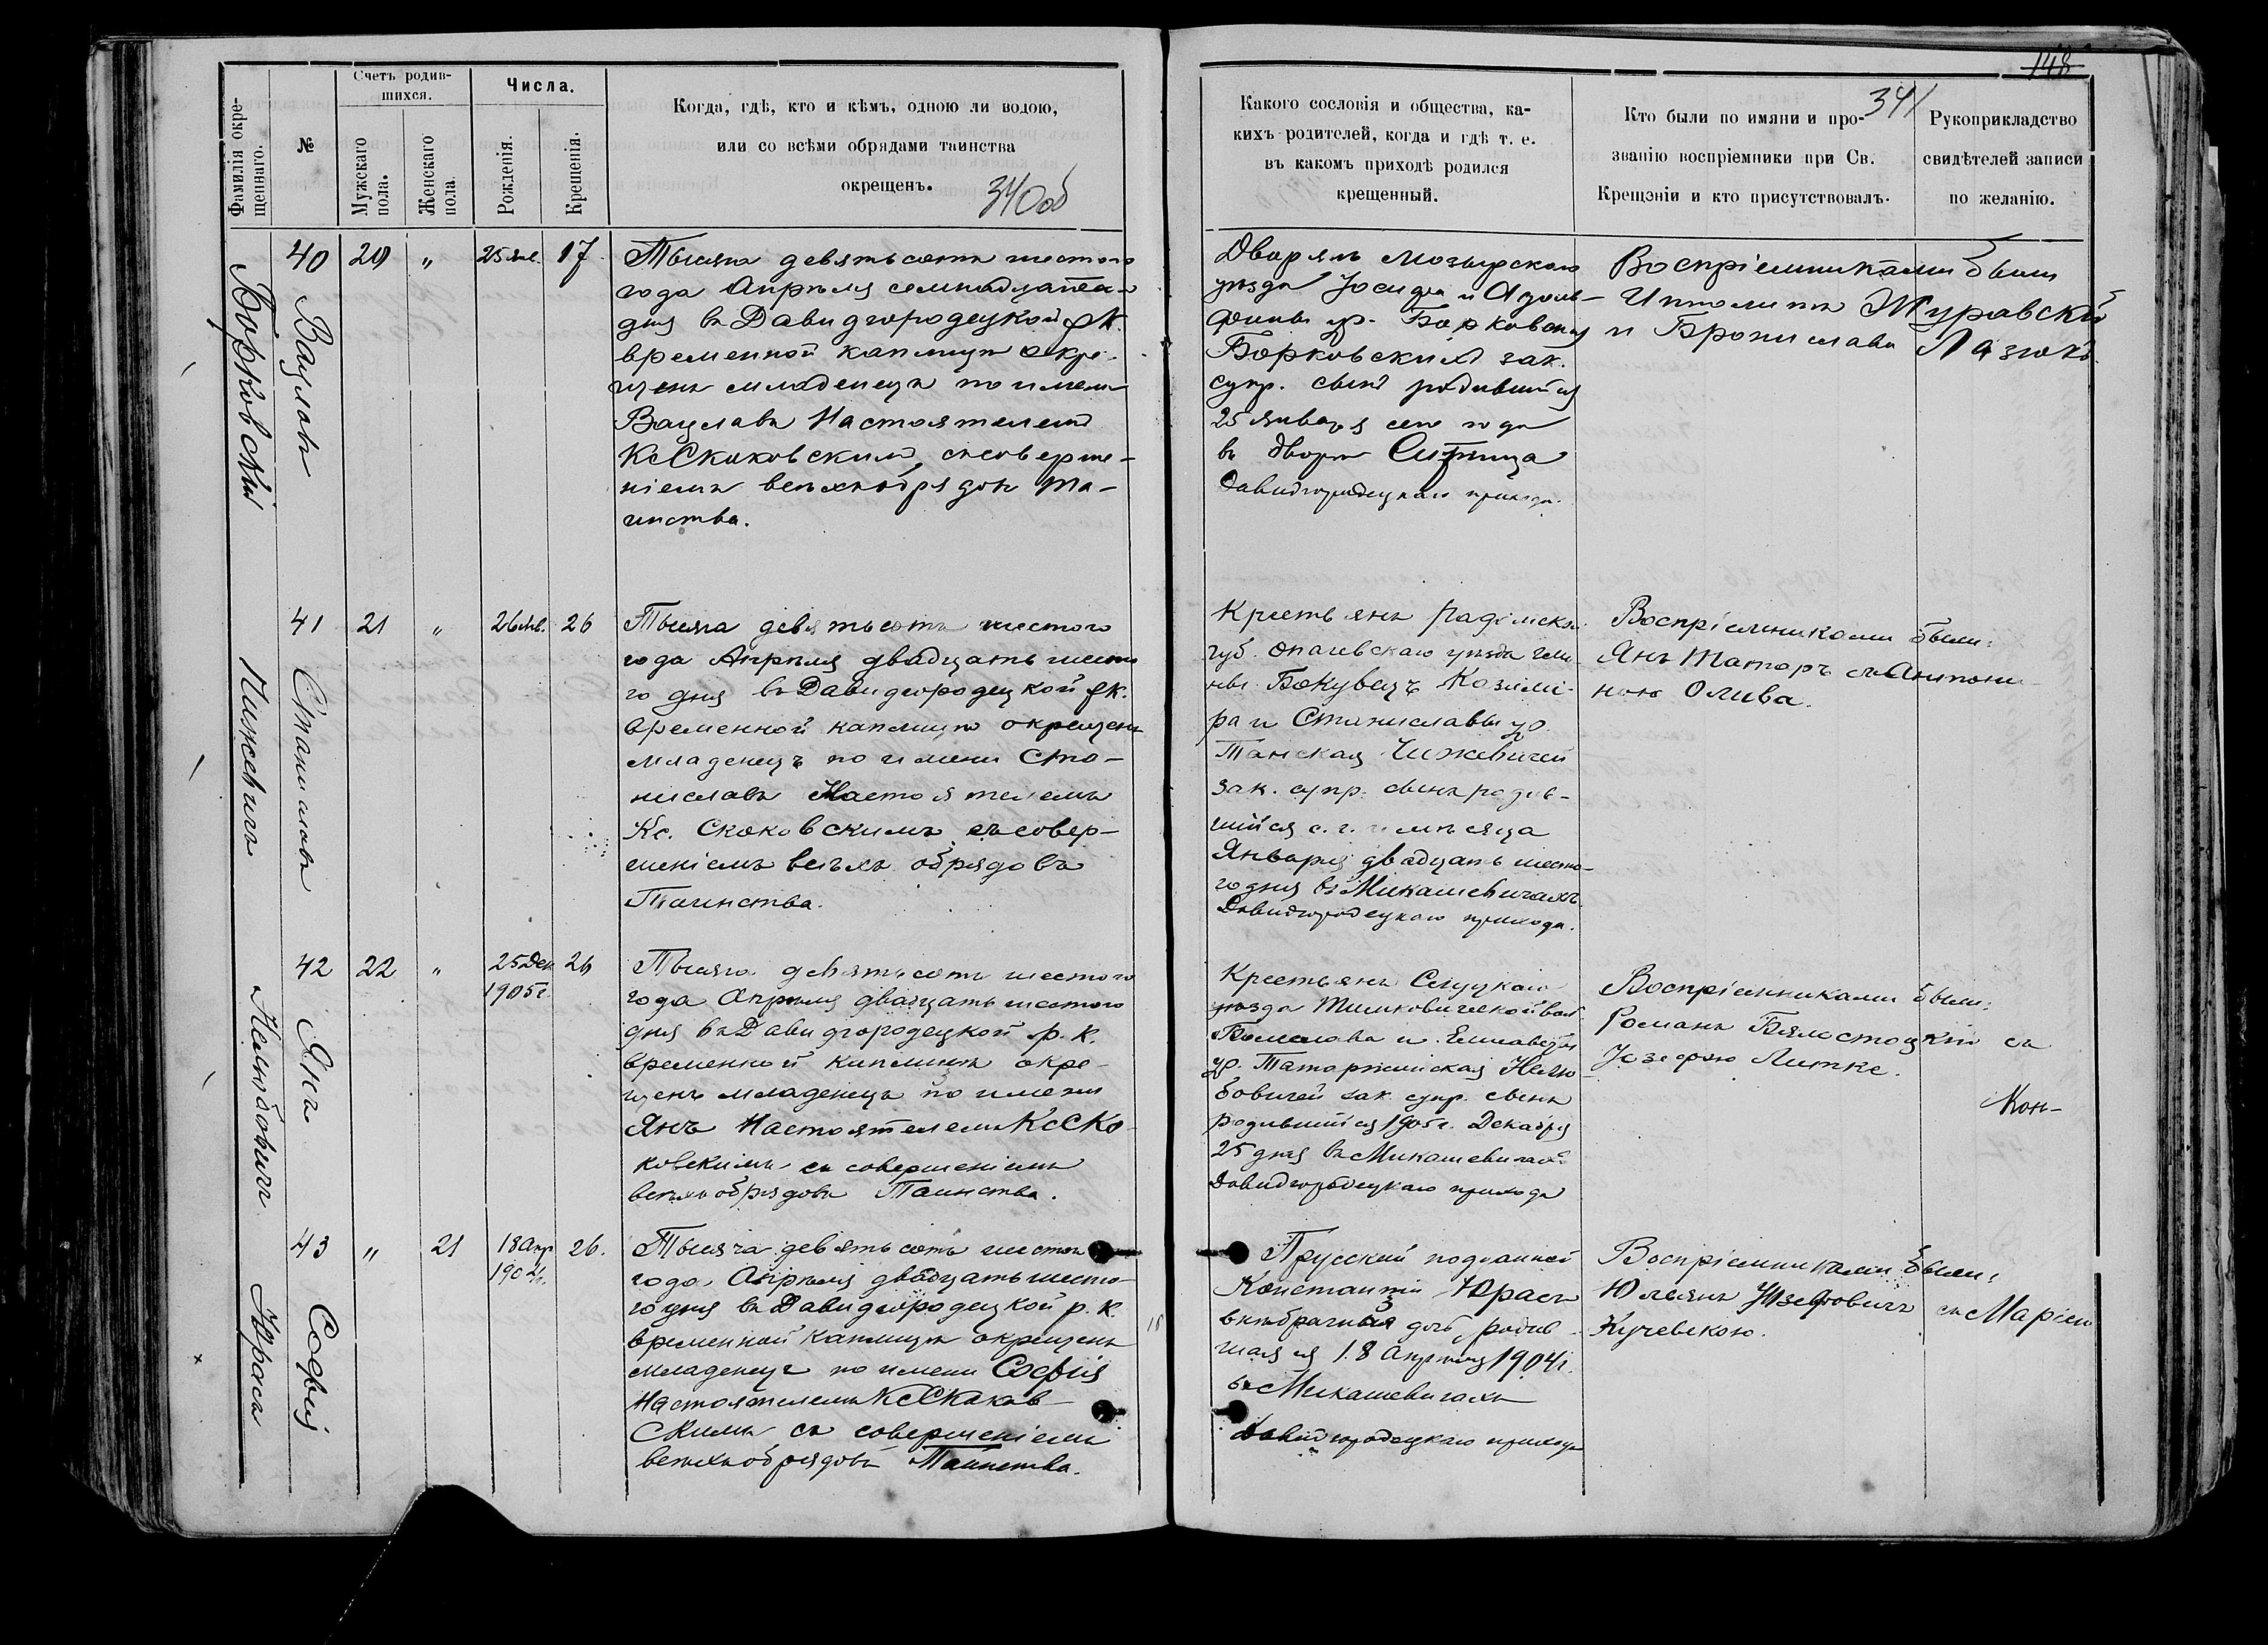 148
341
340об
Фамилія окре-
щеннаго.
№
Счетъ родив-
шихся.
Мужскаго
пола.
Женскаго
пола.
Числа.
Рожденія.
Крещенія.
Когда, гдѣ, кто и кѣмъ, одною ли водою,
или со всѣми обрядами таинства
окрещенъ.
Какого сословія и общества, ка-
кихъ родителей, когда и гдѣ т. е.
въ какомъ приходѣ родился
крещенный.
Кто были по имяни и про-
званію воспріемники при Св.
Крещеніи и кто присутствовалъ.
Рукоприкладство
свидѣтелей записи
по желанію.
Борковскій
Вацлавъ
40 20 " 25 Янв. 17
Тысяча девятьсотъ шестого
года Апрѣля семнадцата-
дня въ Давидгородецкой р.к.
временной каплицѣ окре-
щенъ младенецъ по имени
Вацлавъ Настоятелемъ
Кс Скаковскимъ съ соверше-
ніемъ всѣхъ обрядовъ Та-
инства.
Дворянъ Мозырскаго
уѣзда Іосифа и Адоль-
фины ур. Борковская
Борковскихъ зак.
супр. сынъ родившійся
25 Января сего года
въ дворѣ Ситница
Давидгородецкаго прихода.
Воспріемниками были
Ипполитъ Журавскій
и Бронислава Лазюкъ
Чижевичъ
Станиславъ
41 21 " 26 Янв. 26
Тысяча девятьсотъ шестого
года Апрѣля двадцать шесто
го дня въ Давидгородецкой р.к.
временной каплицѣ окрещенъ
младенецъ по имени Ста-
ниславъ Настоятелемъ
Кс. Скаковскимъ съ совер-
шеніемъ всѣхъ обрядовъ
Таинства.
Крестьянъ Радомской
губ. Опатовскаго уѣзда гми-
ны Бокувецъ Казими-
ра и Станиславы ур.
Танская Чижевичей
зак. супр. сынъ родив-
шійся с. г. мѣсяца
Января двадцать шесто-
го дня въ Микашевичахъ
Давидгородецкаго прихода.
Воспріемниками были:
Янъ Таторъ съ Антони-
ною Олива.
Нелюбовичъ
Янъ
42 22 " 25 Дек 26
1905 г.
Тысяча девятьсотъ шестого
года Апрѣля двадцать шестого
дня въ Давидгородецкой р. к.
временной каплицѣ окре-
щенъ младенецъ по имени
Янъ Настоятелемъ Кс Ска
ковскимъ съ совершеніемъ
всѣхъ обрядовъ Таинства.
Крестьянъ Слуцкаго
уѣзда Тимковичской вол
и Елисаветы
ур. Татаржинская Нелю
бовичей зак. супр. сынъ
родившійся 1905 г. Декабря
25 дня въ Микашевичахъ
Давидгородецкаго прихода
Воспріемниками были:
Романъ Бялостоцкій съ
Юзефою Литке.
Кон-
Юраса
Софія
43 " 21 18 Апр 26.
1904 г.
Тысяча девятьсотъ шестого
года Апрѣля двадцать шесто
го дня въ Давидгородецкой р. к.
временной каплицѣ окрещенъ
младенецъ по имени Софія
Настоятелемъ Кс Скаков-
скимъ съ совершеніемъ
всѣхъ обрядовъ Таинства.
Прусскій подданной
Константіи Юрасъ
внѣбрачная дочь, родив
шаяся 18 Апрѣля 1904 г.
въ Микашевичахъ
Давидгородецкаго прихода
Воспріемниками были:
Юльянъ Юзефовичъ съ Маріею
Кучевскою.